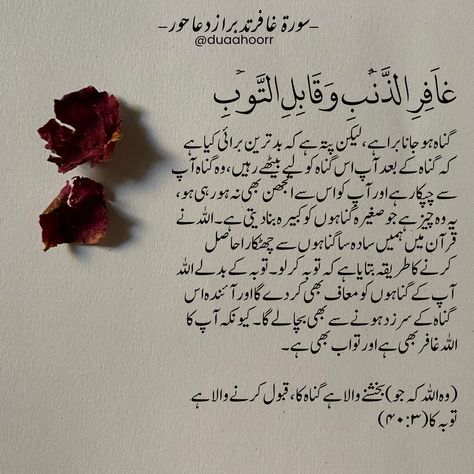 -سورۃ غافر تدبر از دعا حور-
@duaahoorr
غَافِرِ الذَّنْۢبِ وَقَابِلِ التَّوْبِ
گناہ ہو جانا برا ہے، لیکن پتہ ہے کہ بدترین برائی کیا ہے
کہ گناہ کے بعد آپ اس گناہ کو لیے بیٹھے رہیں، وہ گناہ آپ
سے چپکا رہے اور آپ کو اس سے الجھن بھی نہ ہو رہی ہو،
یہ وہ چیز ہے جو صغیرہ گناہوں کو کبیرہ بنا دیتی ہے۔ اللہ نے
قرآن میں ہمیں سادہ سا گناہوں سے چھٹکارا حاصل
کرنے کا طریقہ بتایا ہے کہ توبہ کر لو۔ توبہ کے بدلے اللہ
آپ کے گناہوں کو معاف بھی کر دے گا اور آئندہ اس
گناہ کے سرزد ہونے سے بھی بچا لے گا۔ کیونکہ آپ کا
اللہ غافر بھی ہے اور تواب بھی ہے۔
(وہ اللہ کہ جو) بخشنے والا ہے گناہ کا، قبول کرنے والا ہے
توبہ کا (۴۰:۳)